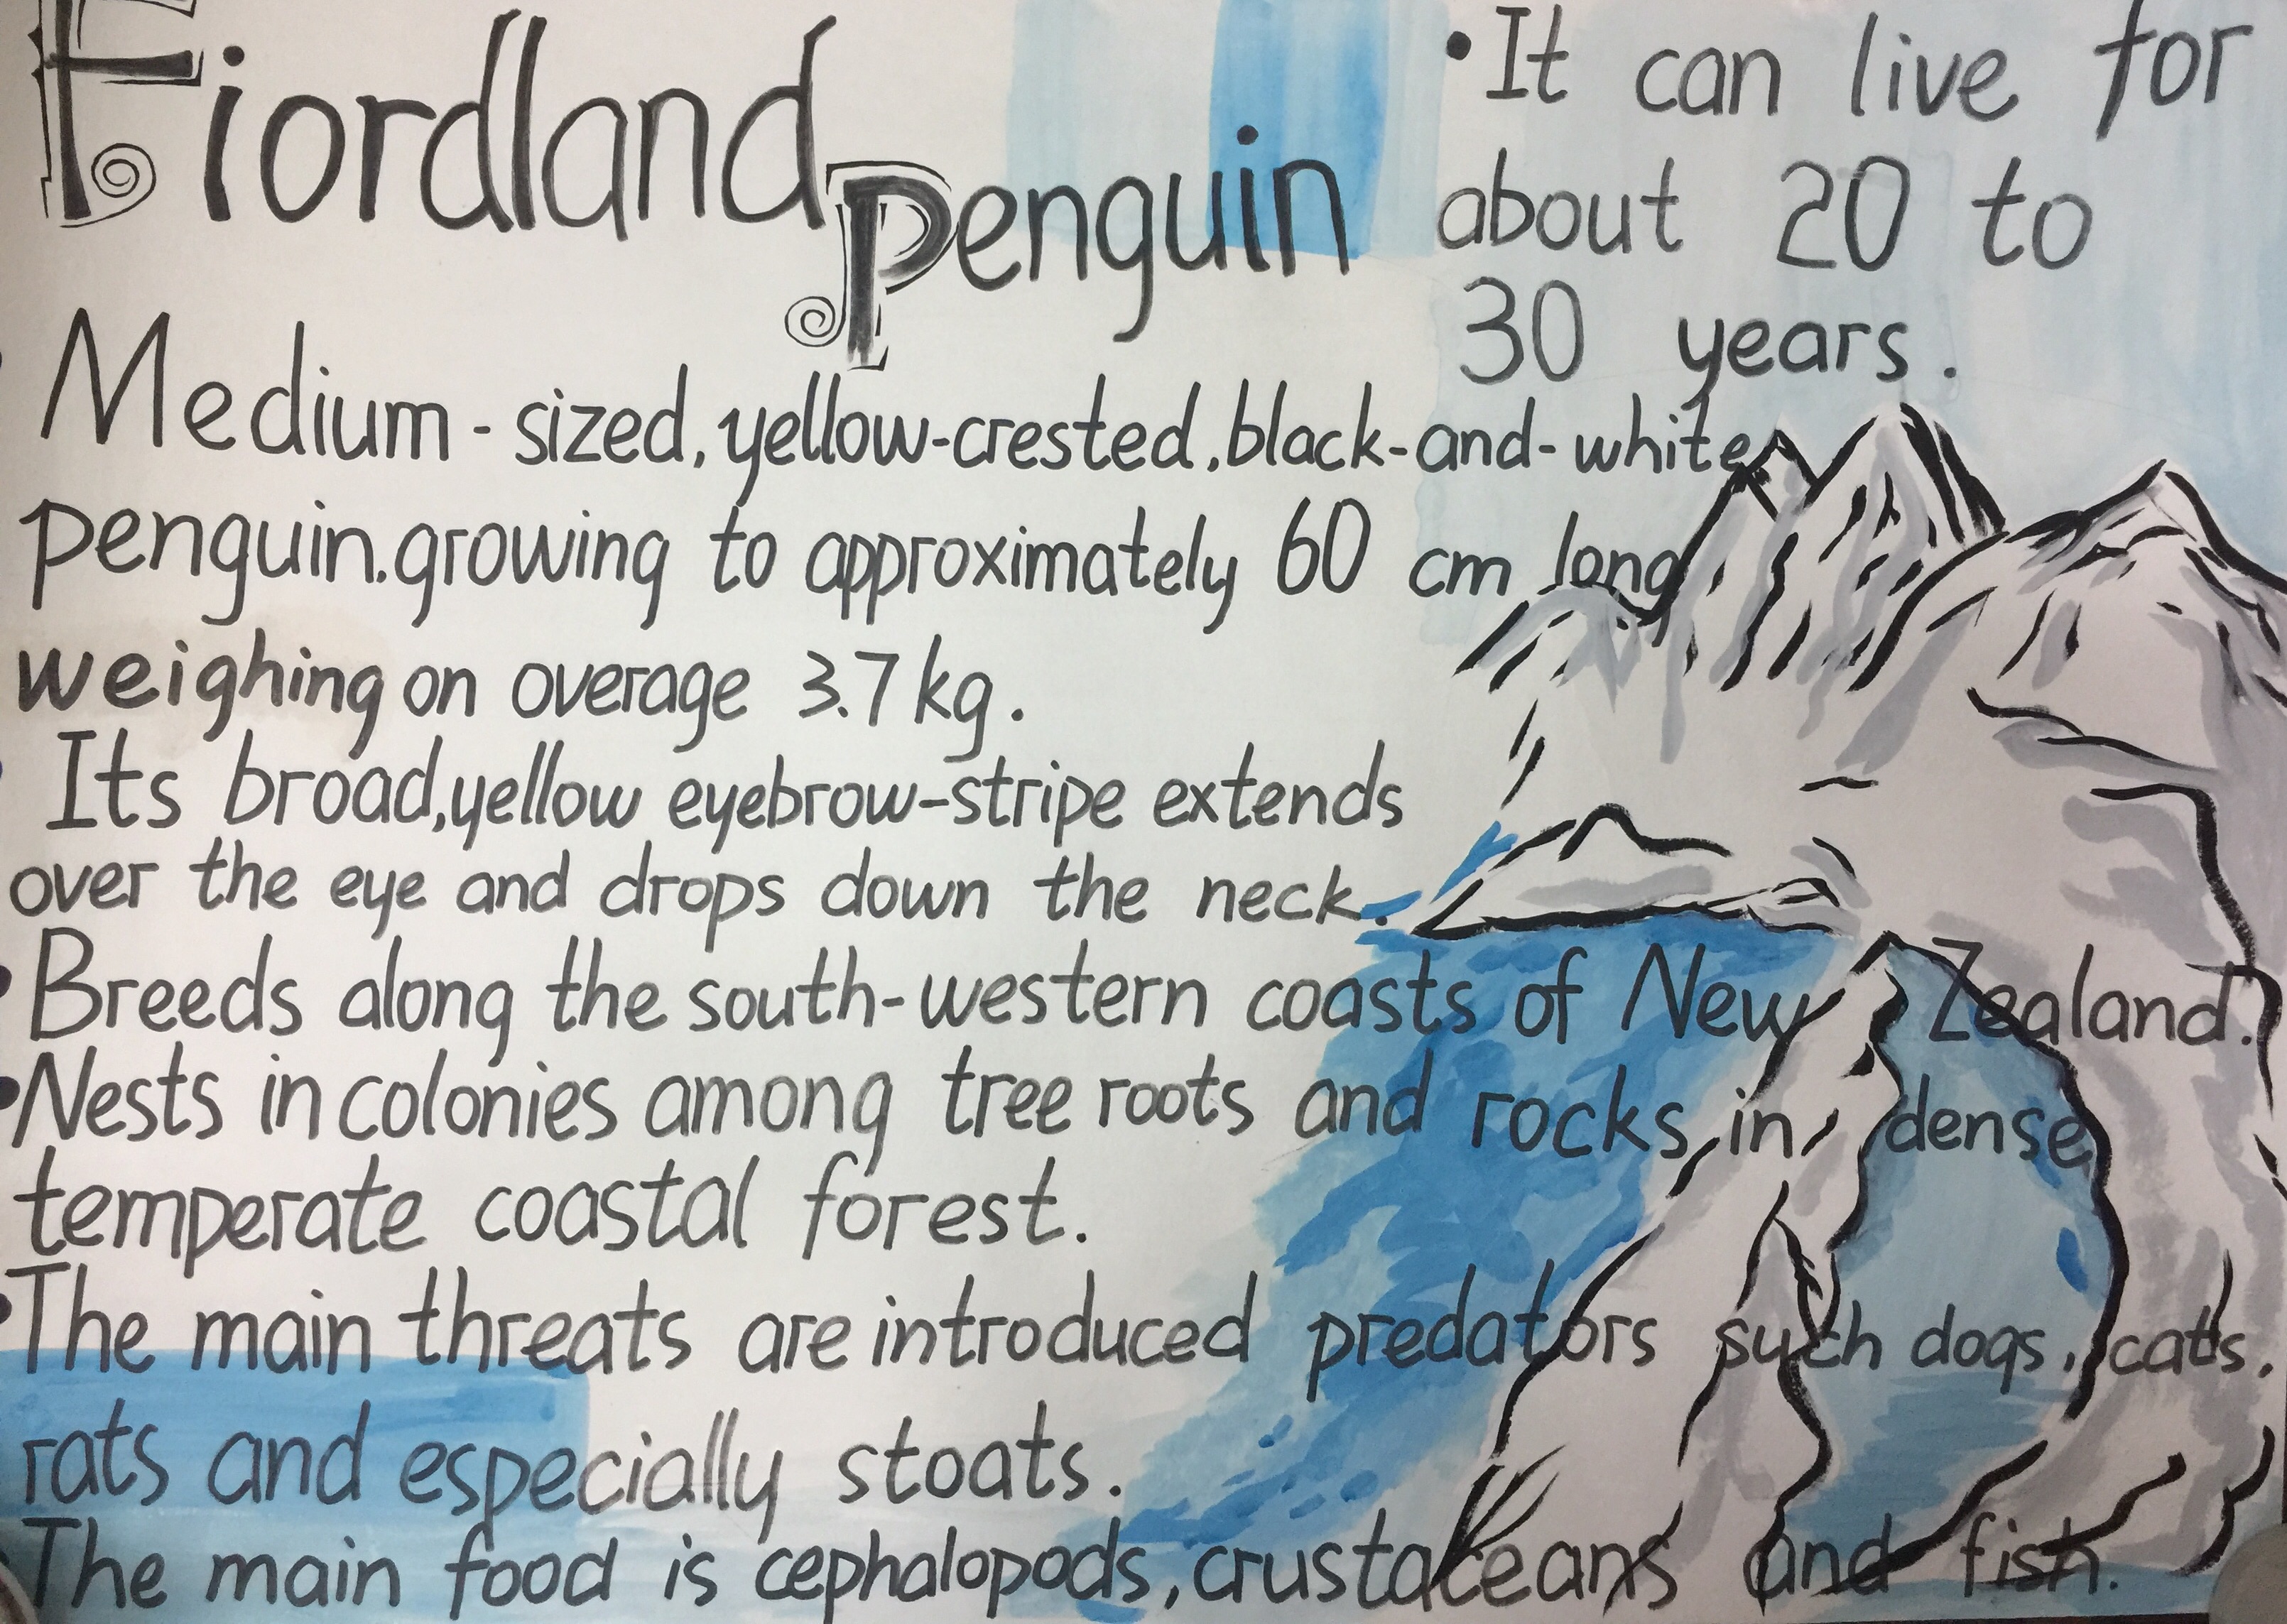 Fiordland
Penguin
Medium-sized, yellow-crested, black-and-white
penguin. growing to approximately 60 cm long
weighing on overage 3.7 kg.
Its broad, yellow eyebrow-stripe extends
over the eye and drops down the neck.
• Breeds along the south-western coasts of New Zealand.
• Nests in colonies among tree roots and rocks in dense
temperate coastal forest.
• The main threats are introduced predators such dogs, cats.
rats and especially stoats.
The main food is cephalopods, crustaceans and fish.
• It can live for
about 20 to
30 years.